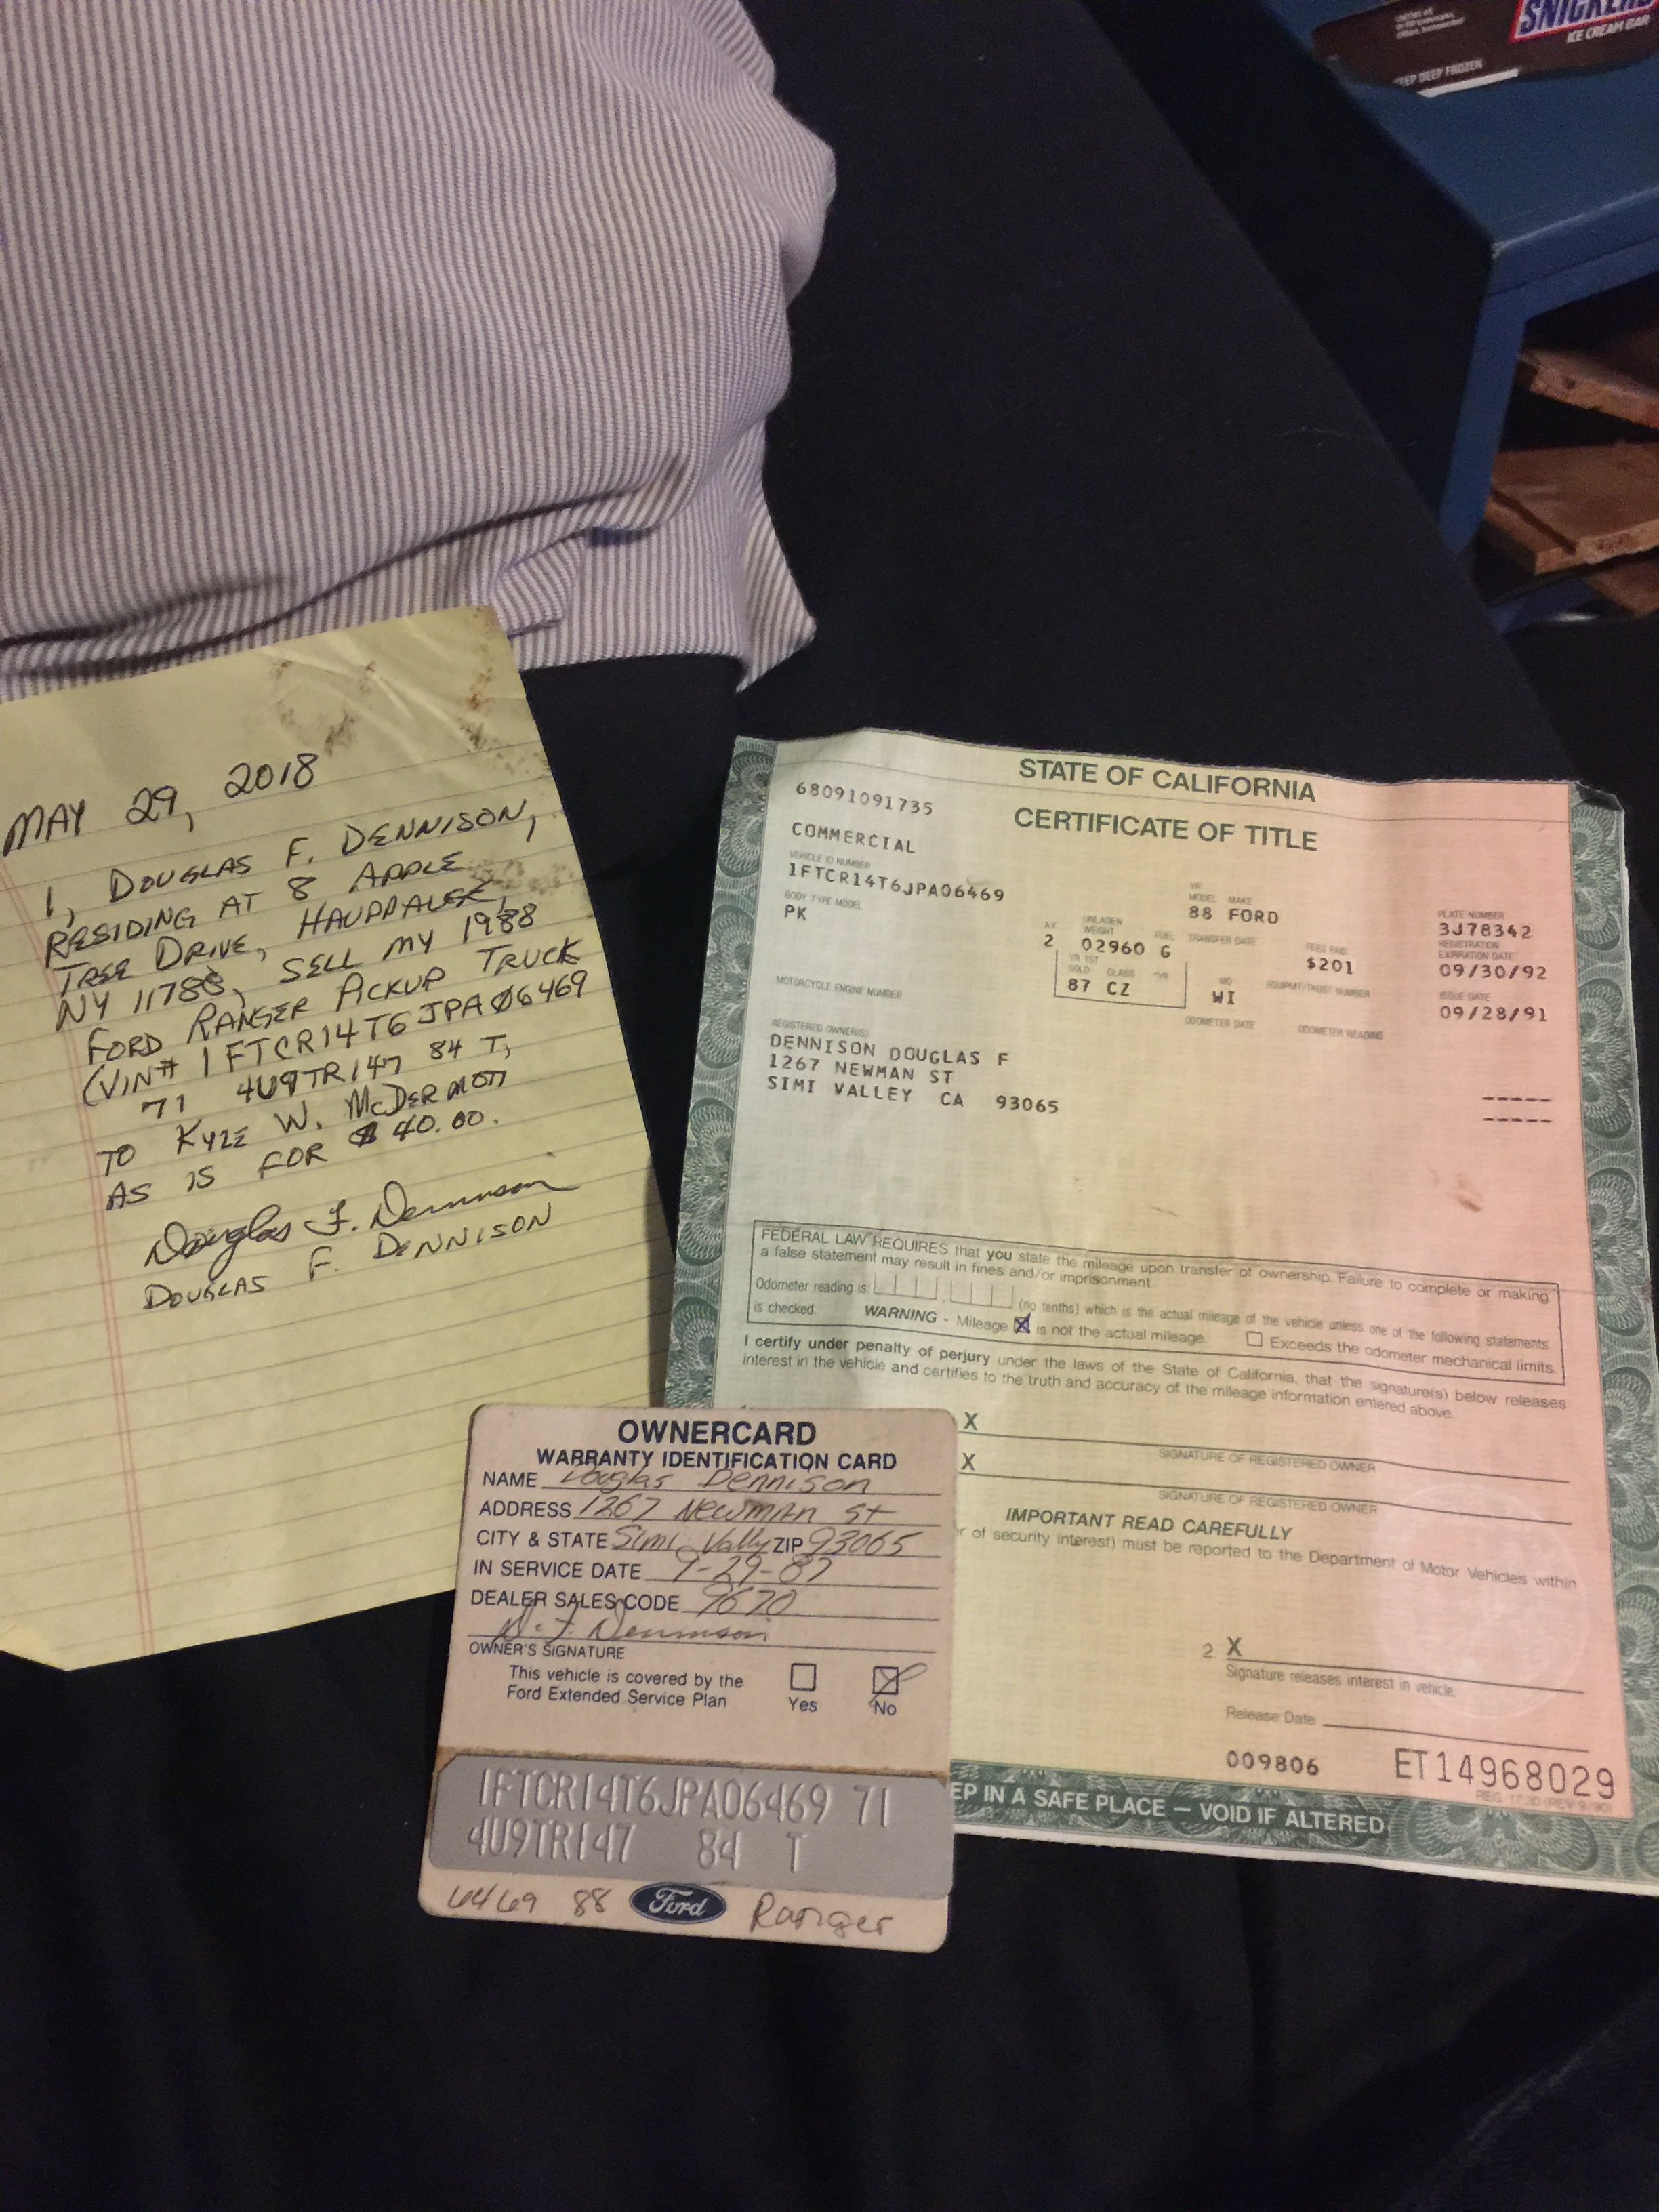 SNICKERS
ICE CREAM BAR
KEEP DEEP FROZEN
MAY 29, 2018
I, DOUGLAS F. DENNISON,
RESIDING AT 8 APPLE
TREE DRIVE, HAUPPAUGE,
NY 11788, SELL MY 1988
FORD RANGER PICKUP TRUCK
(VIN# 1FTCR14T6JPA06469
71 4U9TR147 84 T,
TO KYLE W. McDERMOTT
AS IS FOR $40.00.
Douglas F. Dennison
DOUGLAS F. DENNISON
STATE OF CALIFORNIA
CERTIFICATE OF TITLE
68091091735
COMMERCIAL
VEHICLE ID NUMBER
1FTCR14T6JPA06469
BODY TYPE MODEL
PK
YR MODEL MAKE
88 FORD
PLATE NUMBER
3J78342
AX UNLADEN WEIGHT FUEL TRANSFER DATE FEES PAID
2 02960 G $201
REGISTRATION EXPIRATION DATE
09/30/92
YR 1ST SOLD CLASS *YR MO EQUIPMT/TRUST NUMBER
87 CZ WI
ISSUE DATE
09/28/91
MOTORCYCLE ENGINE NUMBER
ODOMETER DATE ODOMETER READING
REGISTERED OWNER(S)
DENNISON DOUGLAS F
1267 NEWMAN ST
SIMI VALLEY CA 93065
FEDERAL LAW REQUIRES that you state the mileage upon transfer of ownership. Failure to complete or making
a false statement may result in fines and/or imprisonment.
Odometer reading is: (no tenths) which is the actual mileage of the vehicle unless one of the following statements
is checked. WARNING - Mileage is not the actual mileage. Exceeds the odometer mechanical limits.
I certify under penalty of perjury under the laws of the State of California, that the signature(s) below releases
interest in the vehicle and certifies to the truth and accuracy of the mileage information entered above.
X
SIGNATURE OF REGISTERED OWNER
X
SIGNATURE OF REGISTERED OWNER
IMPORTANT READ CAREFULLY
of security interest) must be reported to the Department of Motor Vehicles within
2. X
Signature releases interest in vehicle.
Release Date
009806 ET14968029
REG. 17.30 (REV 9/90)
IN A SAFE PLACE — VOID IF ALTERED
OWNERCARD
WARRANTY IDENTIFICATION CARD
NAME Douglas Dennison
ADDRESS 1267 Newman St
CITY & STATE Simi Vally ZIP 93065
IN SERVICE DATE 9-29-87
DEALER SALES CODE 7670
D. F. Dennison
OWNER'S SIGNATURE
This vehicle is covered by the
Ford Extended Service Plan
Yes No
1FTCR14T6JPA06469 71
4U9TR147 84 T
6469 88 Ford Ranger